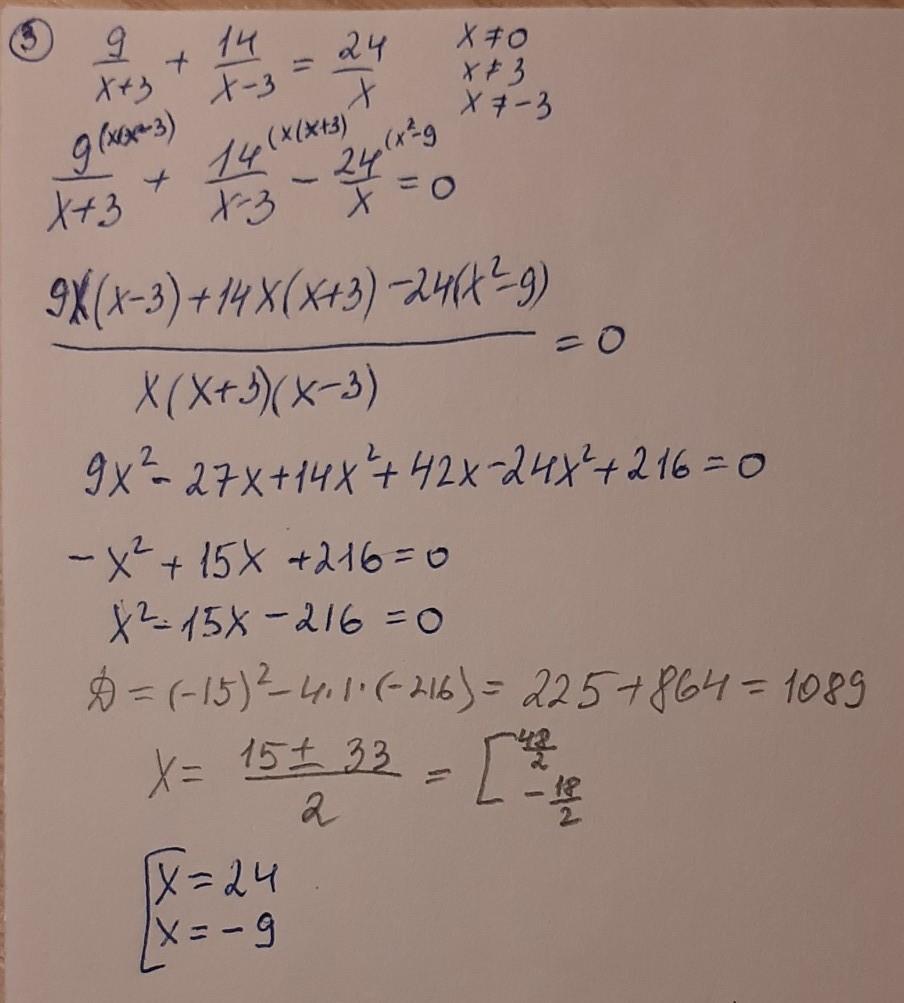 ③ 9/(x+3) + 14/(x-3) = 24/x x≠0
x≠3
x≠-3
9^(x(x-3)/(x+3) + 14^(x(x+3)/(x-3) - 24^(x²-9/x = 0
(9x(x-3)+14x(x+3)-24(x²-9))/(x(x+3)(x-3)) = 0
9x²-27x+14x²+42x-24x²+216=0
-x²+15x+216=0
x²-15x-216=0
D=(-15)²-4·1·(-216)=225+864=1089
x= (15±33)/2 = [48/2
-18/2
[x=24
x=-9